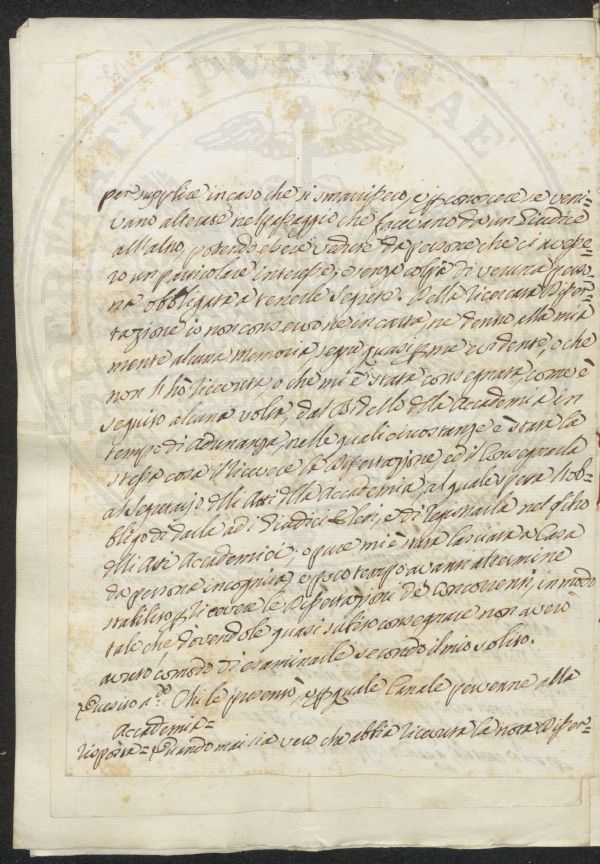 PUBLICAE
per supplire in caso che si smarrissero, e per conoscere, se veni-
vano alterate nel passaggio che facevano da un Giudice
all'altro, potendo essere vedute da persone che ci avesse-
ro un particolare interesse, e senza colpa di veruna perso-
na obbligata a tenerle segrete. Della ricercata Disser-
tazione io non conservo ne in carta, ne dentro alla mia
mente alcuna memoria, segno quasi evidente, o che
non l'hò ricevuta, o che mi è stata consegnata, come è
seguito alcuna volta, dal Bidello della Accademia in
tempo di adunanza, nelle quali circostanze è stata la
stessa cosa il ricevere la Dissertazione ed il consegnarla
al Segretario delli Atti della Accademia, al quale spetta l'ob-
bligo di darle ad i Giudici Eletti, e di registrarla nel filo
delli Atti Accademici; oppure mi è stata lasciata a Casa
da persona incognita, e poco tempo avanti al termine
stabilito per ricevere le Dissertazioni de' Concorrenti, in modo
tale che, dovendole quasi subito consegnare non averò
avuto comodo di esaminarle secondo il mio solito.
Quesito 2.do Chi le presentò, e per quale Canale pervenne alla
Accademia =
Risposta = Quando mai sia vero che abbia ricevuta la nota Disser-